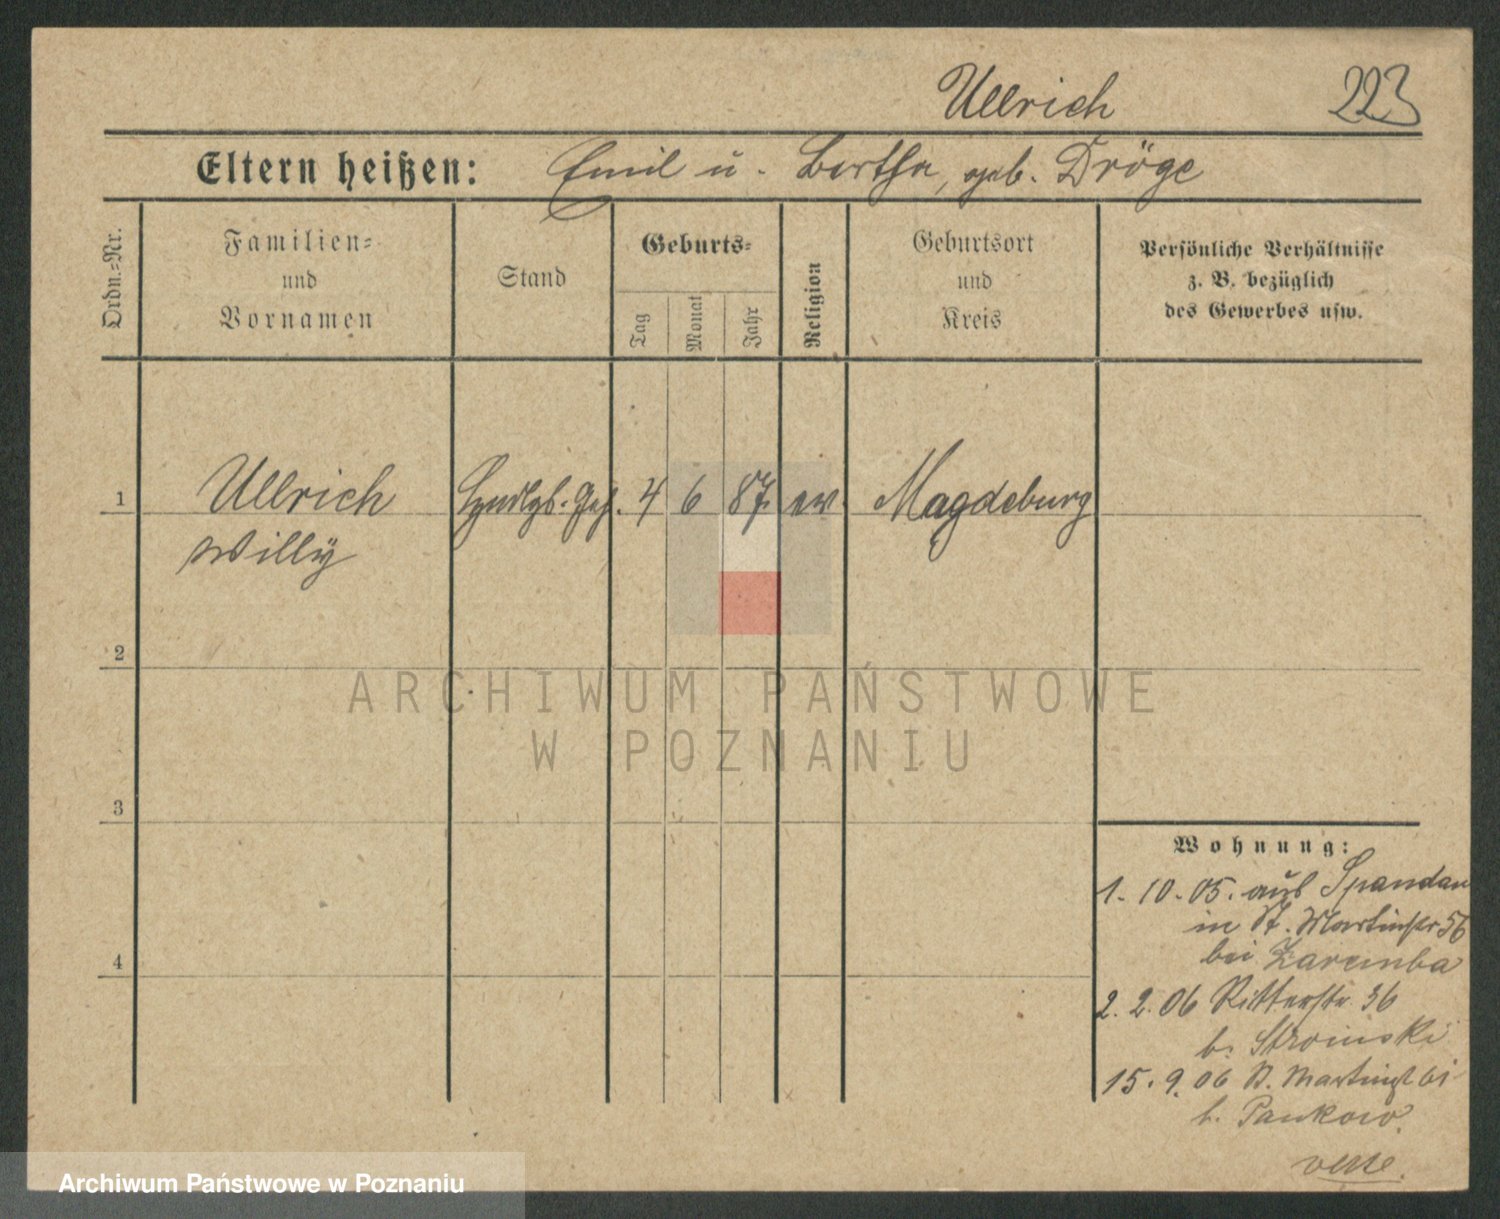 Ullrich 223
Eltern heißen: Emil u. Bertha, geb. Dröge
Ordn.-Nr.
Familien-
und
Vornamen
Stand
Geburts-
Tag
Monat
Jahr
Religion
Geburtsort
und
Kreis
Persönliche Verhältnisse
z. B. bezüglich
des Gewerbes usw.
1 Ullrich Hndlgs. Geh. 4 6 87. ev. Magdeburg
Willy
2
3
4
ARCHIWUM PAŃSTWOWE
W POZNANIU
Wohnung:
1. 10. 05. aus Spandau
in St. Martinstr 56
bei Zaremba
2. 2. 06 Ritterstr. 36
b. Stroinski
15. 9. 06 St. Martinst 61
b. Pankow.
verte.
Archiwum Państwowe w Poznaniu